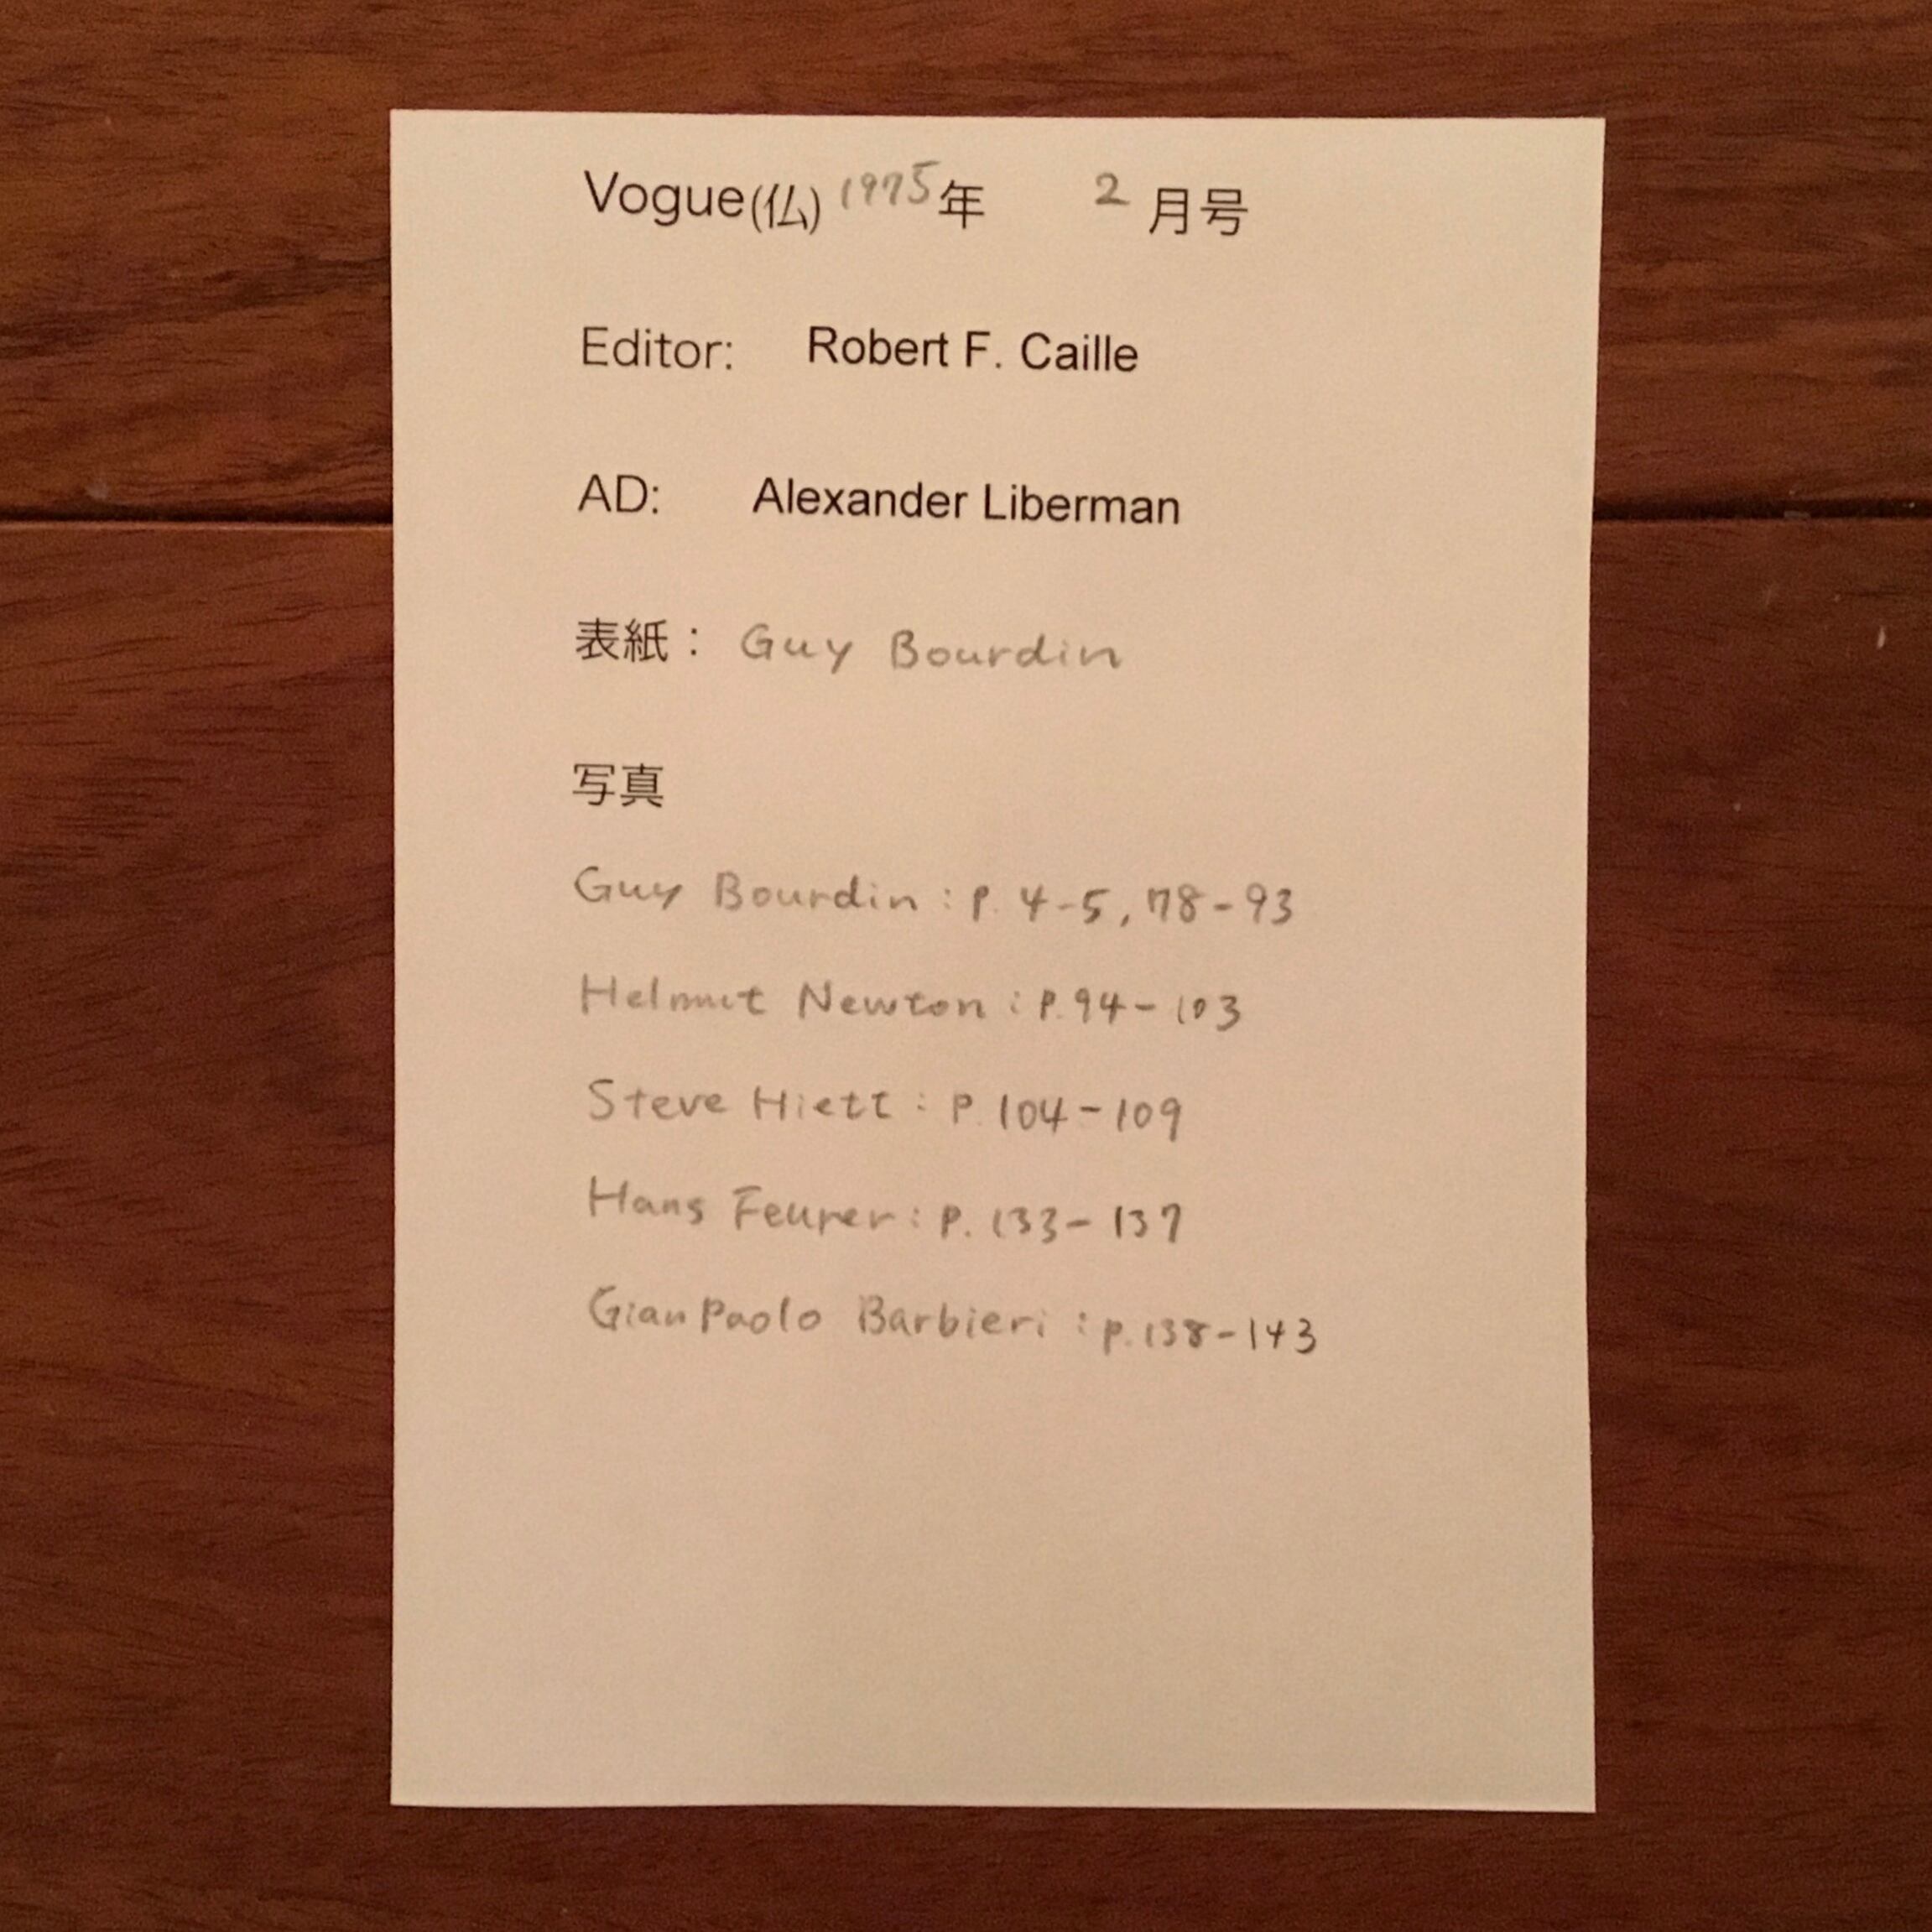 Vogue(仏) 1975年 2月号
Editor: Robert F. Caille
AD: Alexander Liberman
表紙: Guy Bourdin
写真
Guy Bourdin: p. 4-5, 78-93
Helmut Newton: p. 94-103
Steve Hiett: p. 104-109
Hans Feurer: p. 133-137
Gian Paolo Barbieri: p. 138-143